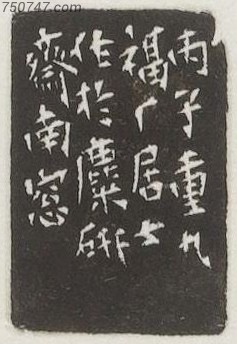 750747.com
丙子重九
福厂居士
作於麋研
齋南窓